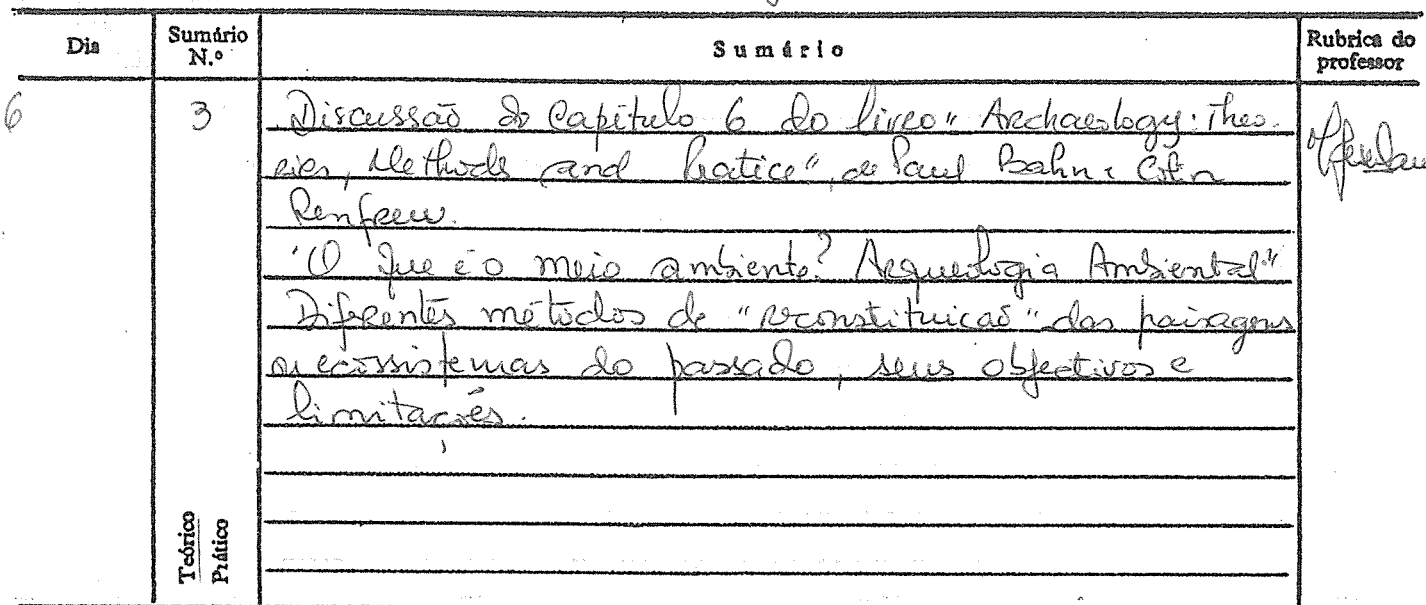 Dia Sumário N.º Sumário Rubrica do professor
6 3 Discussão do Capítulo 6 do livro "Archaeology: Theo-
ries, Methods and Pratice", de Paul Bahn e Colin
Renfrew.
"O que é o meio ambiente? Arqueologia Ambiental"
Diferentes métodos de "reconstituição" das paisagens
ou ecossistemas do passado, seus objectivos e
limitações.
Teórico
Prático